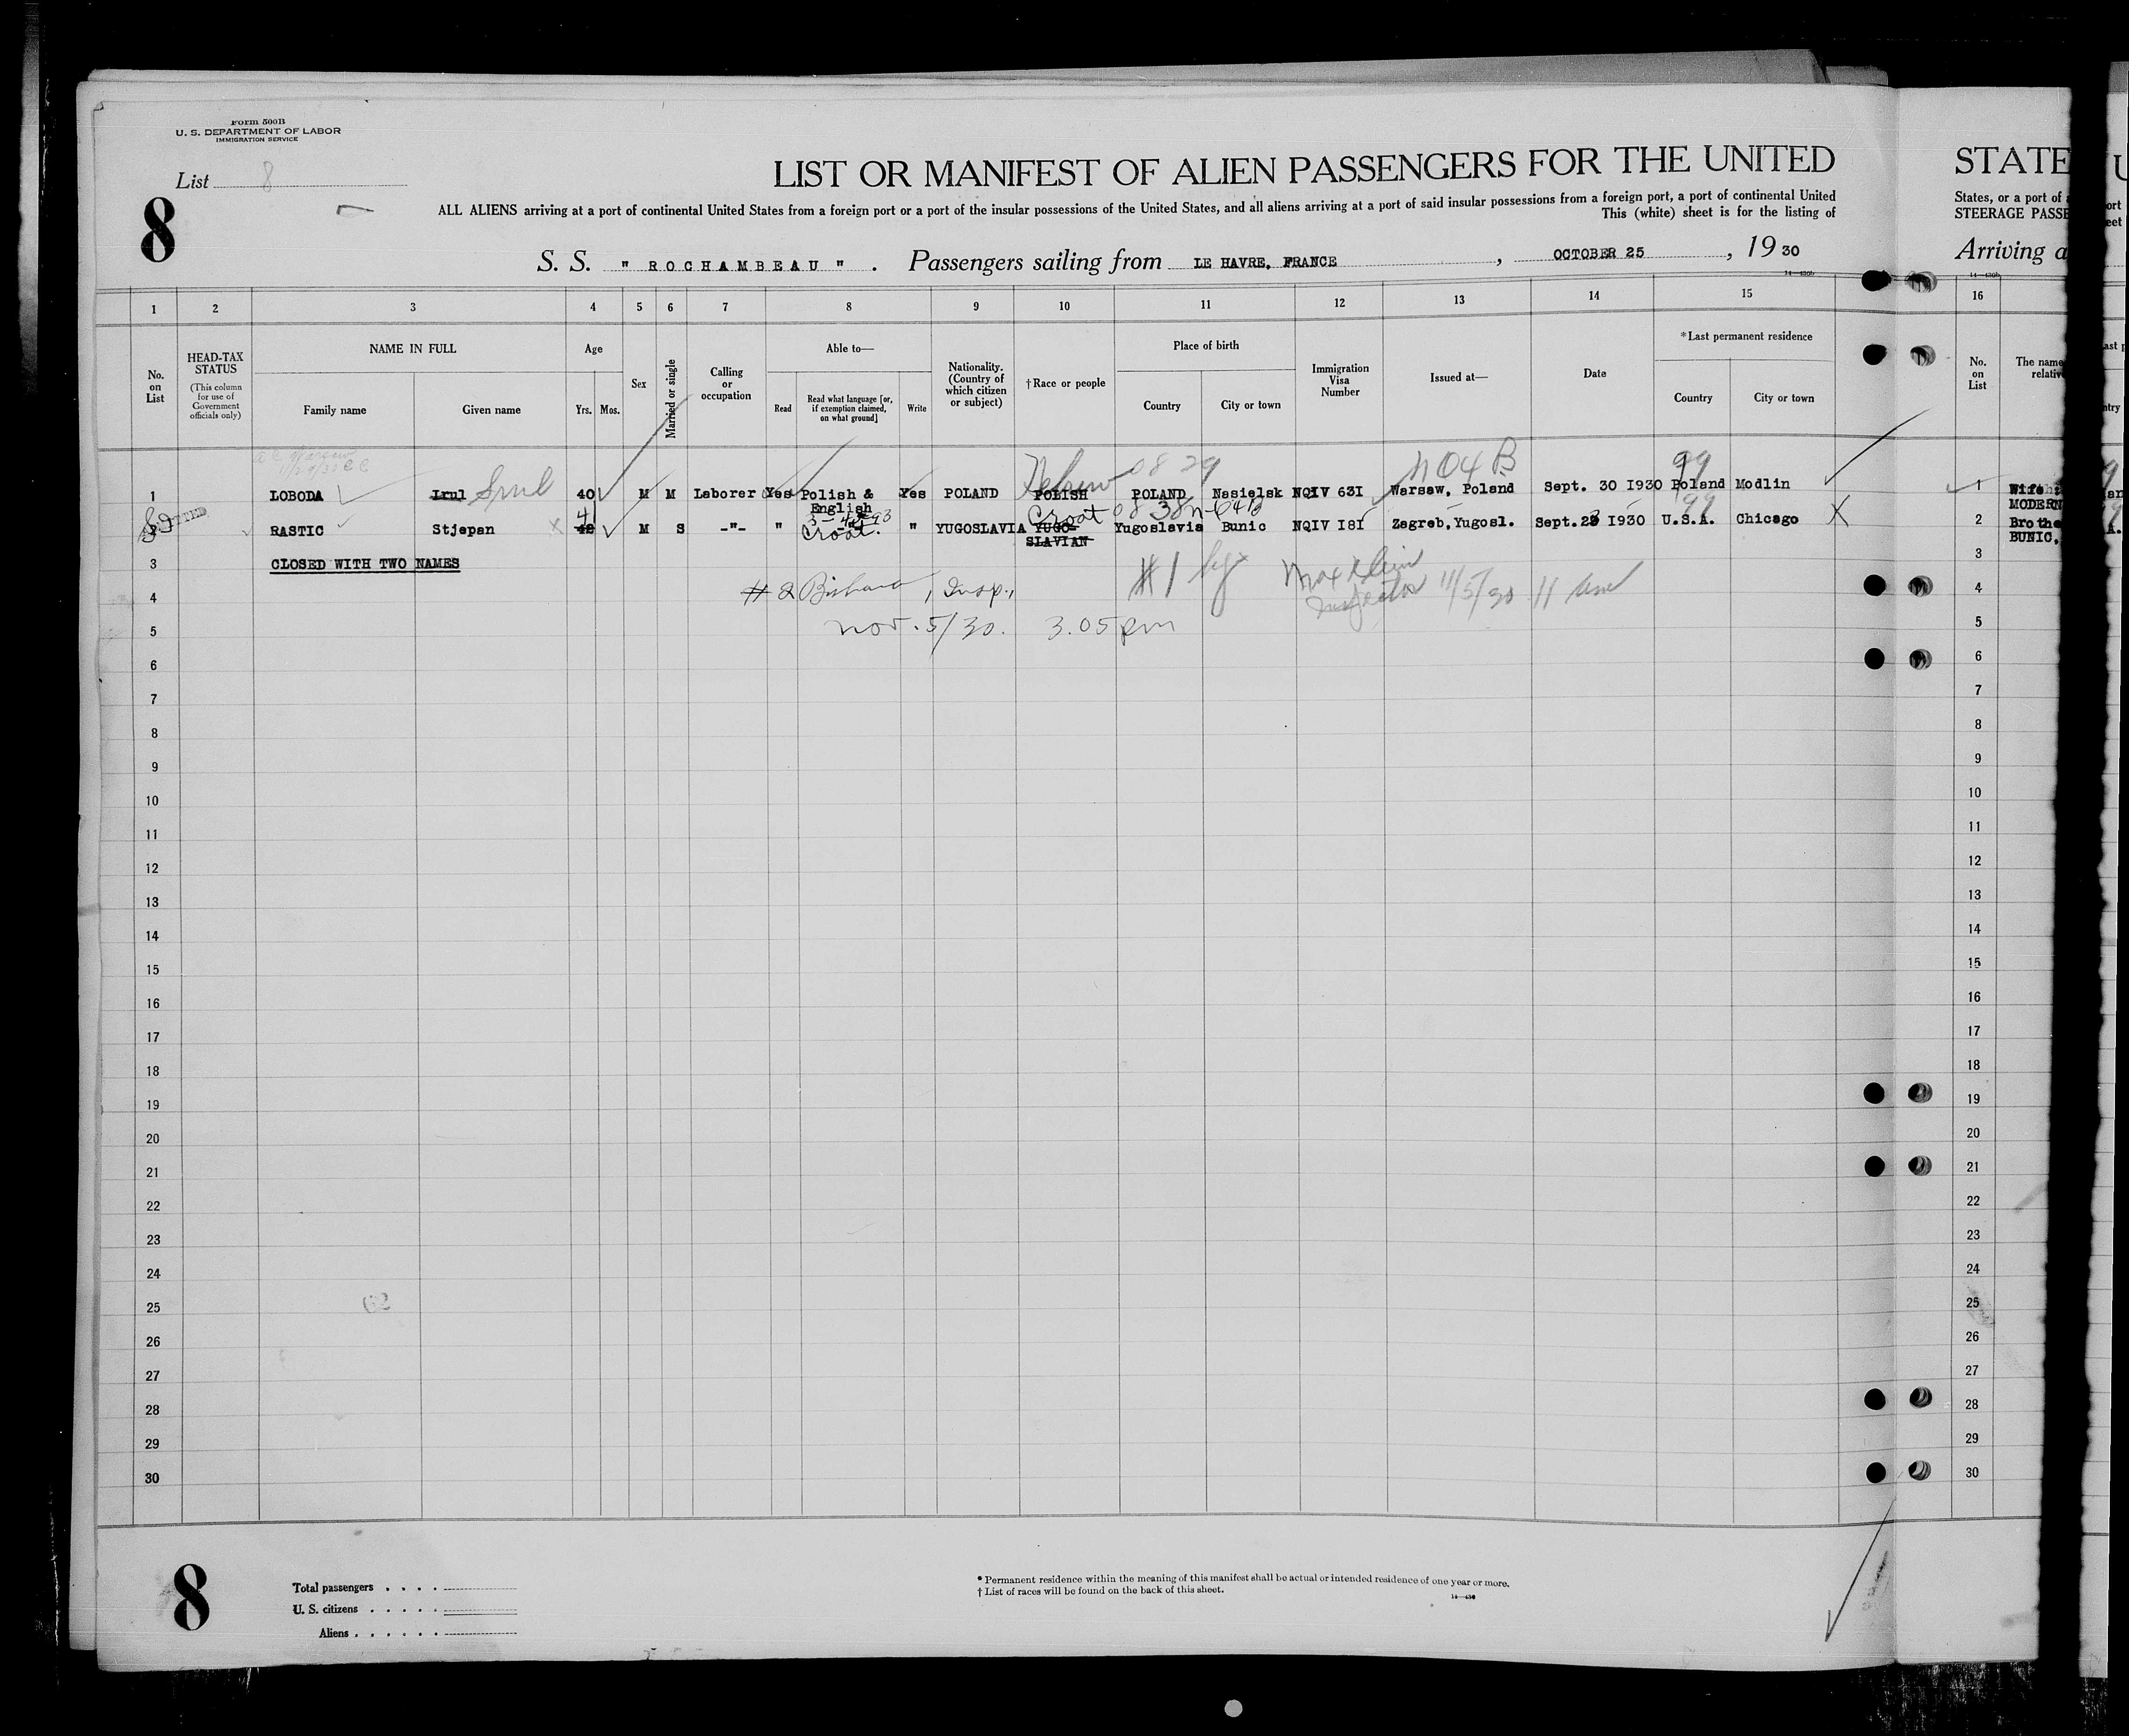 Form 500B
U. S. DEPARTMENT OF LABOR
IMMIGRATION SERVICE
List 8
8
LIST OR MANIFEST OF ALIEN PASSENGERS FOR THE UNITED
ALL ALIENS arriving at a port of continental United States from a foreign port or a port of the insular possessions of the United States, and all aliens arriving at a port of said insular possessions from a foreign port, a port of continental United
This (white) sheet is for the listing of
S. S. " ROCHAMBEAU " . Passengers sailing from LE HAVRE, FRANCE , OCTOBER 25 , 19 30
STATE
States, or a port of
STEERAGE PASSE
Arriving a
1 2 3 4 5 6 7 8 9 10 11 12 13 14 15 16
No. on List
HEAD-TAX STATUS
(This column for use of Government officials only)
NAME IN FULL
Family name
Given name
Age
Yrs.
Mos.
Sex
Married or single
Calling or occupation
Able to—
Read
Read what language [or, if exemption claimed, on what ground]
Write
Nationality. (Country of which citizen or subject)
†Race or people
Place of birth
Country
City or town
Immigration Visa Number
Issued at—
Date
*Last permanent residence
Country
City or town
No. on List
The name
relativ
08 29
n 04 B
99
1 LOBODA Irul Srul 40 M M Laborer Yes Polish & English Yes POLAND POLISH Hebrew POLAND Nasielsk NQIV 63I Warsaw, Poland Sept. 30 I930 Poland Modlin 1 Wife
MODERN
08 38 n-64B
99
2 RASTIC Stjepan 42 41 M S -"- " -"- Croat. " YUGOSLAVIA YUGO-SLAVIAN Croat Yugoslavia Bunic NQIV I8I Zagreb,Yugosl. Sept.23 I930 U.S.A. Chicago X 2 Brothe
BUNIC,
3 CLOSED WITH TWO NAMES 3
# 2 , Insp.,
Nov. 5/30. 3.05 pm
#1 by Max Klein
Inspector 11/5/30 11 am
4 4
5 5
6 6
7 7
8 8
9 9
10 10
11 11
12 12
13 13
14 14
15 15
16 16
17 17
18 18
19 19
20 20
21 21
22 22
23 23
24 24
25 25
26 26
27 27
28 28
29 29
30 30
62
8
Total passengers . . . .
U. S. citizens . . . . .
Aliens . . . . . .
* Permanent residence within the meaning of this manifest shall be actual or intended residence of one year or more.
† List of races will be found on the back of this sheet.